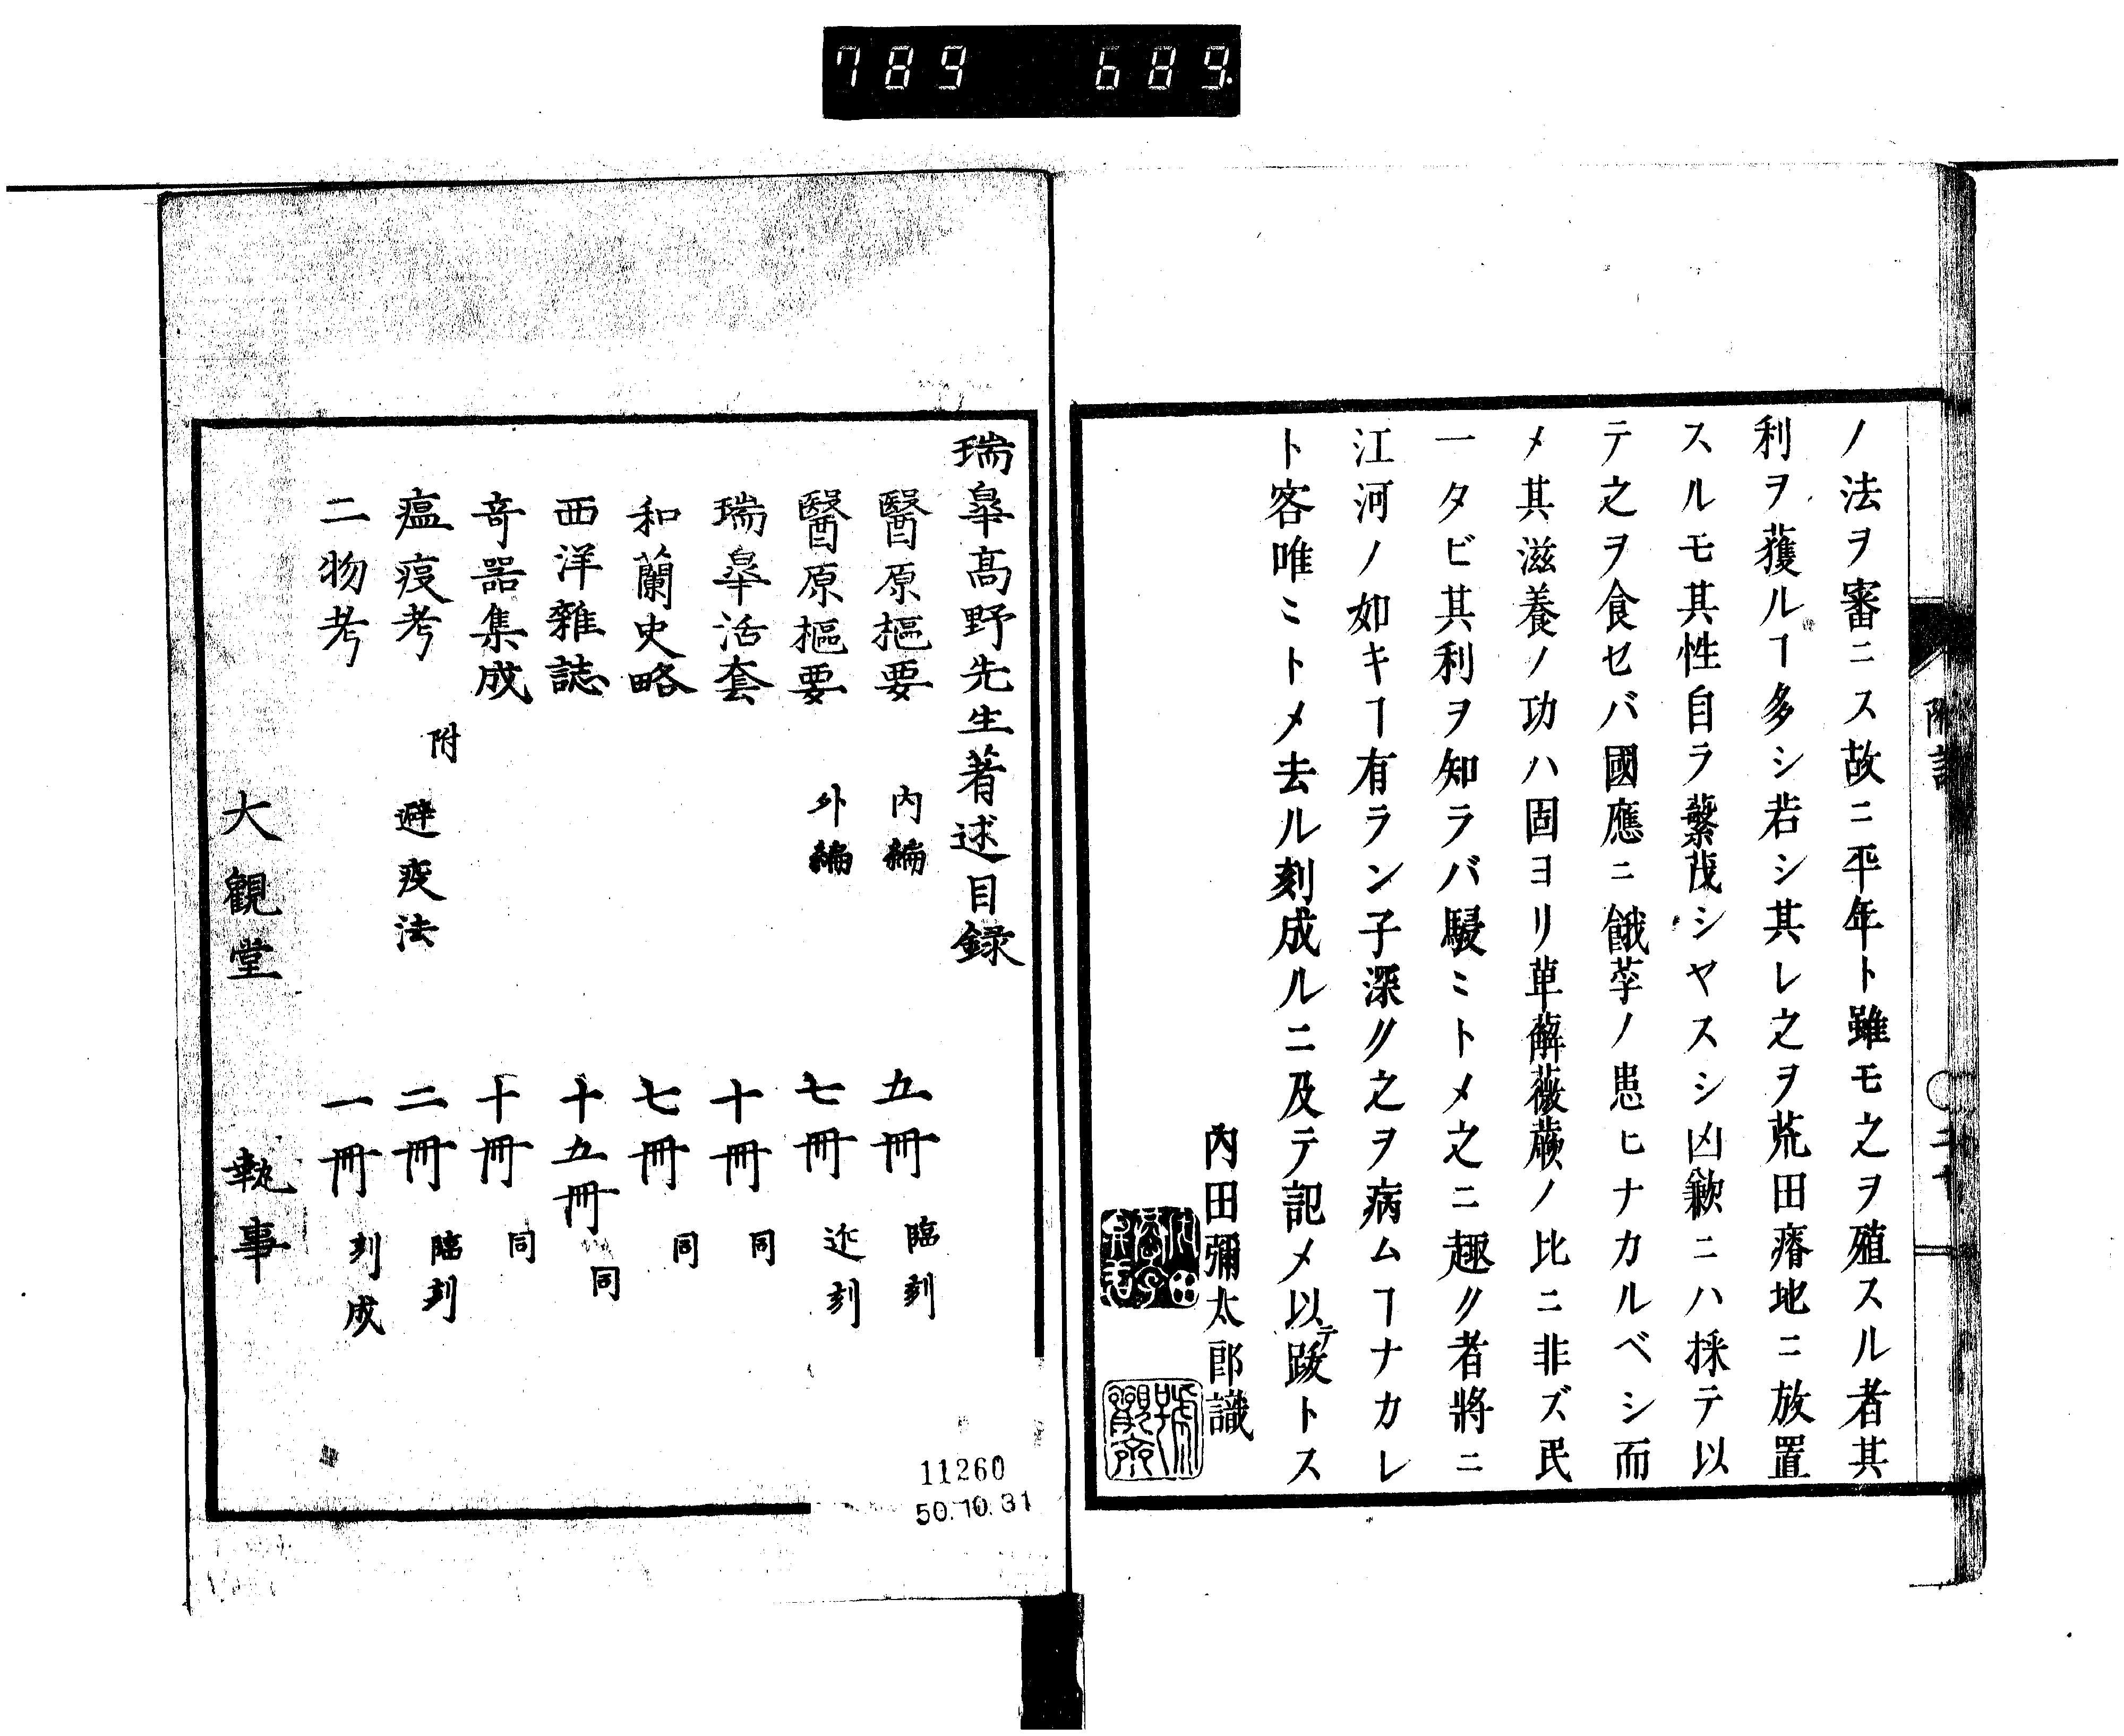 789 689.
ノ法ヲ審ニス故ニ平年ト雖モ之ヲ殖スル者其
利ヲ獲ルヿ多シ若シ其レ之ヲ荒田瘠地ニ放置
スルモ其性自ラ蘩茂シヤスシ凶歉ニハ採テ以
テ之ヲ食セバ國應ニ餓莩ノ患ヒナカルベシ而
メ其滋養ノ功ハ固ヨリ草薢薇蕨ノ比ニ非ズ民
一タビ其利ヲ知ラバ駸ミトメ之ニ趣ク者將ニ
江河ノ如キヿ有ラン子深ク之ヲ病ムヿナカレ
ト客唯ミトメ去ル刻成ルニ及テ記メ以テ跋トス
内田彌太郎識
瑞皐髙野先生著述目録
醫原樞要 内編 五冊 臨刻
醫原樞要 外編 七冊 近刻
瑞皐活套 十冊 同
和蘭史略 七冊 同
西洋雜誌 十五冊 同
竒噐集成 十冊 同
瘟疫考 附 避疫法 二冊 臨刻
二物考 一冊 刻成
大觀堂 執事
11260
50.10.31